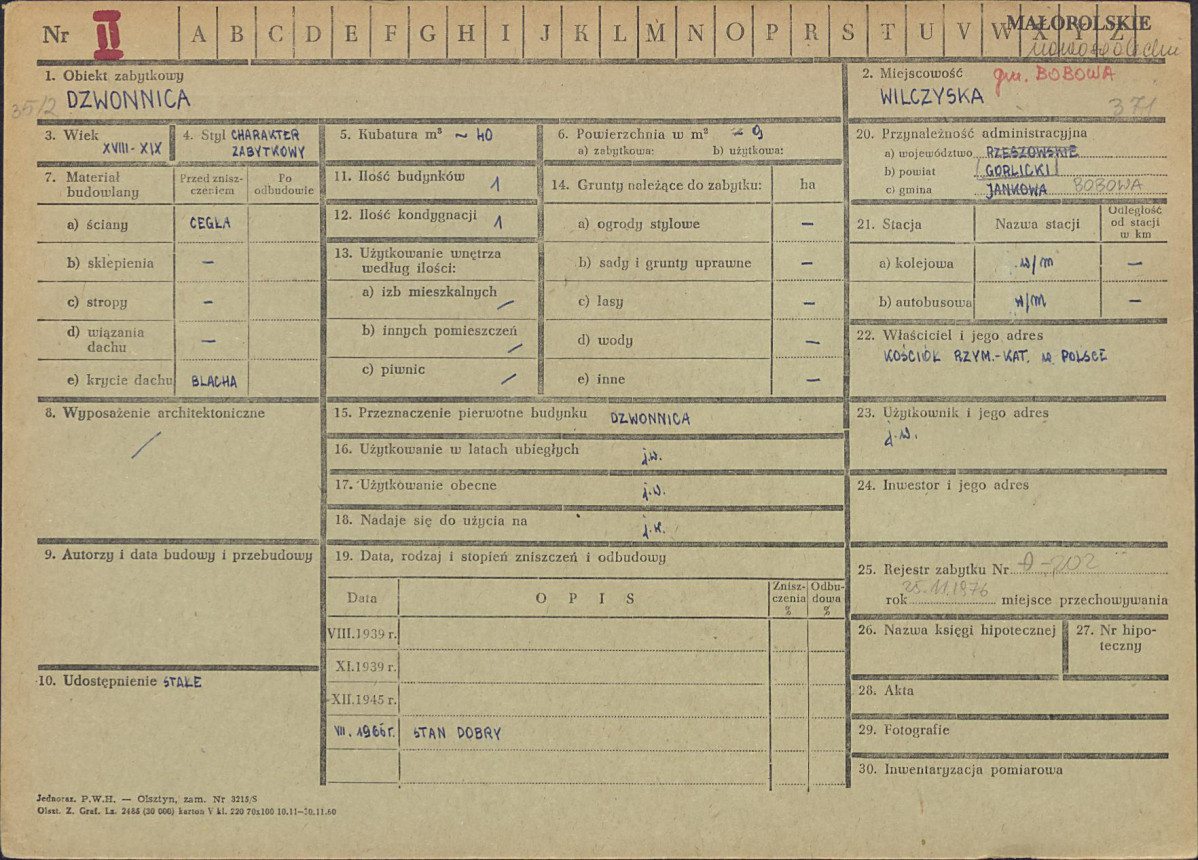 Nr II A B C D E F G H I J K L M N O P R S T U V W X Y Z
MAŁOPOLSKIE
nowosądeckie
1. Obiekt zabytkowy
35/2 DZWONNICA
2. Miejscowość gm. BOBOWA
WILCZYSKA
371
3. Wiek
XVIII - XIX
4. Styl CHARAKTER
ZABYTKOWY
5. Kubatura m³ ~ 40
6. Powierzchnia w m² ~ 9
a) zabytkowa: b) użytkowa:
7. Materiał
budowlany
Przed znisz-
czeniem
Po
odbudowie
a) ściany CEGŁA
b) sklepienia –
c) stropy –
d) wiązania
dachu –
e) krycie dachu BLACHA
8. Wyposażenie architektoniczne
/
9. Autorzy i data budowy i przebudowy
10. Udostępnienie STAŁE
11. Ilość budynków 1
12. Ilość kondygnacji 1
13. Użytkowanie wnętrza
według ilości:
a) izb mieszkalnych /
b) innych pomieszczeń /
c) piwnic /
14. Grunty należące do zabytku: ha
a) ogrody stylowe –
b) sady i grunty uprawne –
c) lasy –
d) wody –
e) inne –
15. Przeznaczenie pierwotne budynku DZWONNICA
16. Użytkowanie w latach ubiegłych j.w.
17. Użytkowanie obecne j.w.
18. Nadaje się do użycia na j.w.
19. Data, rodzaj i stopień zniszczeń i odbudowy
Data
O P I S
Znisz-
czenia
%
Odbu-
dowa
%
VIII.1939 r.
XI.1939 r.
XII.1945 r.
VII.1966 r. STAN DOBRY
20. Przynależność administracyjna
a) województwo RZESZOWSKIE
b) powiat GORLICKI
c) gmina JANKOWA BOBOWA
21. Stacja
Nazwa stacji
Odległość
od stacji
w km
a) kolejowa w/m –
b) autobusowa w/m –
22. Właściciel i jego adres
KOŚCIÓŁ RZYM.-KAT. w POLSCE
23. Użytkownik i jego adres
j.w.
24. Inwestor i jego adres
25. Rejestr zabytku Nr A-202
rok 25.11.1976 miejsce przechowywania
26. Nazwa księgi hipotecznej
27. Nr hipo-
teczny
28. Akta
29. Fotografie
30. Inwentaryzacja pomiarowa
Jednoraz. P.W.H. — Olsztyn, zam. Nr 3215/S
Olszt. Z. Graf. Lz. 2485 (30 000) karton V kl. 220 70x100 10.11—20.11.60